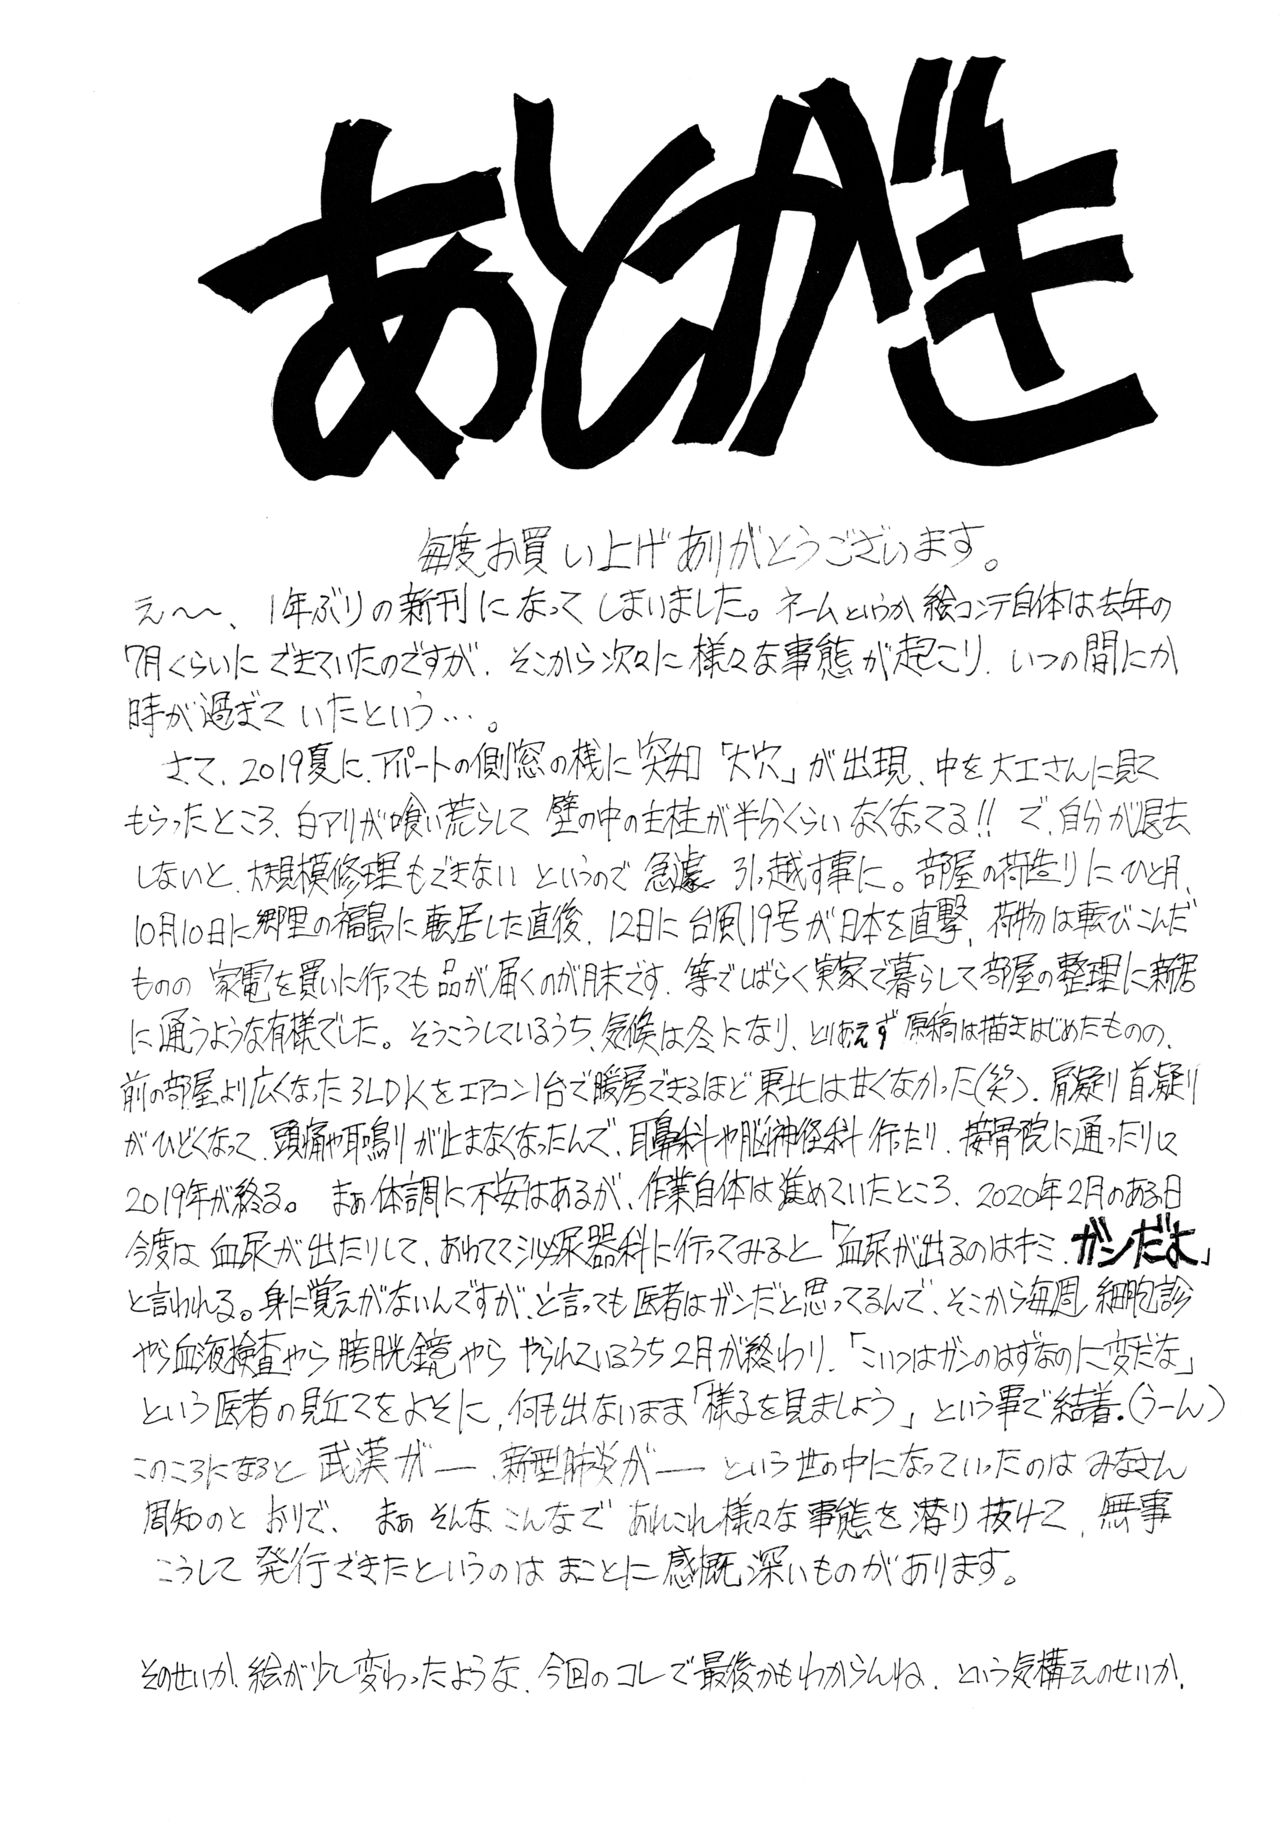 あとがき
毎度お買い上げありがとうございます。
え〜〜、1年ぶりの新刊になってしまいました。ネームというか絵コンテ自体は去年の
7月くらいにできていたのですが、そこから次々に様々な事態が起こり、いつの間にか
時が過ぎていたという…。
さて、2019夏に、アパートの側窓の桟に突如「大穴」が出現、中を大工さんに見て
もらったところ、白アリが喰い荒らして壁の中の主柱が半分くらいなくなってる!!で、自分が退去
しないと、大規模修理もできないというので急遽引っ越す事に。部屋の荷造りにひと月、
10月10日に郷里の福島に転居した直後、12日に台風19号が日本を直撃、荷物は転びこんだ
ものの家電を買いに行っても品が届くのが月末です、等でしばらく実家で暮らして部屋の整理に新居
に通うような有様でした。そうこうしているうち、気候は冬になり、とりあえず原稿は描きはじめたものの、
前の部屋より広くなった3LDKをエアコン1台で暖房できるほど東北は甘くなかった(笑)、肩凝り首凝り
がひどくなって、頭痛や耳鳴りが止まなくなったんで、耳鼻科や脳神経科行たり、接骨院に通ったりして
2019年が終る。まぁ体調に不安はあるが、作業自体は進めていたところ、2020年2月のある日
今度は血尿が出たりして、あわてて泌尿器科に行ってみると「血尿が出るのはキミ、ガンだよ」
と言われる。身に覚えがないんですが、と言っても医者はガンだと思ってるんで、そこから毎週細胞診
やら血液検査やら膀胱鏡やらやられているうち2月が終わり、「こいつはガンのはずなのに変だな」
という医者の見立てをよそに、何も出ないまま「様子を見ましょう」という事で結着。(うーん)
このころになると武漢がー、新型肺炎がーという世の中になっていったのはみなさん
周知のとおりで、まぁそんなこんなであれこれ様々な事態を潜り抜けて、無事
こうして発行できたというのはまことに感慨深いものがあります。
そのせいか、絵が少し変わったような、今回のコレで最後かもわからんね、という気構えのせいか、